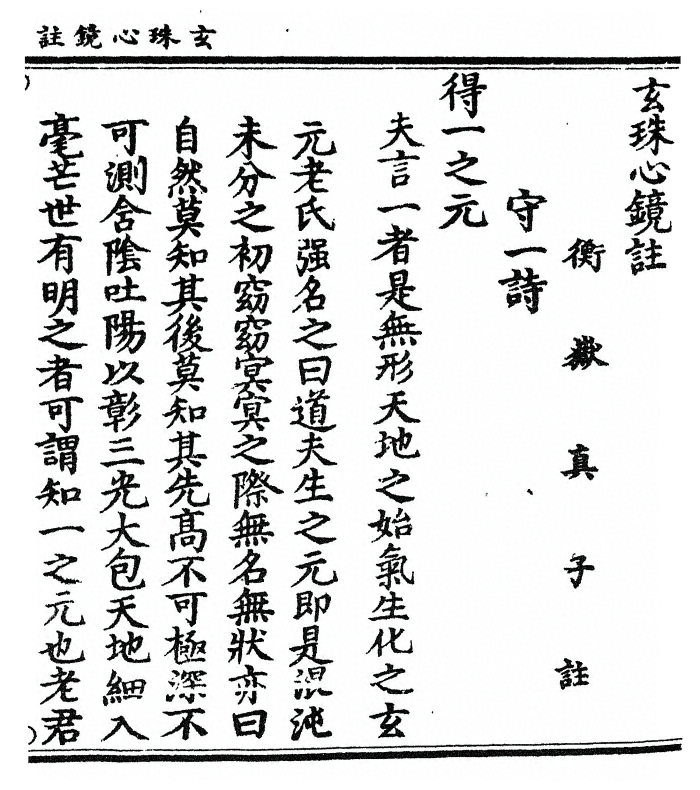 玄珠心鏡註
玄珠心鏡註
衡嶽真子註
守一詩
得一之元
夫言一者是無形天地之始氣生化之玄
元老氏强名之曰道夫生之元即是混沌
未分之初窈窈冥冥之際無名無狀亦曰
自然莫知其後莫知其先高不可極深不
可測含陰吐陽以彰三光大包天地細入
毫芒世有明之者可謂知一之元也老君